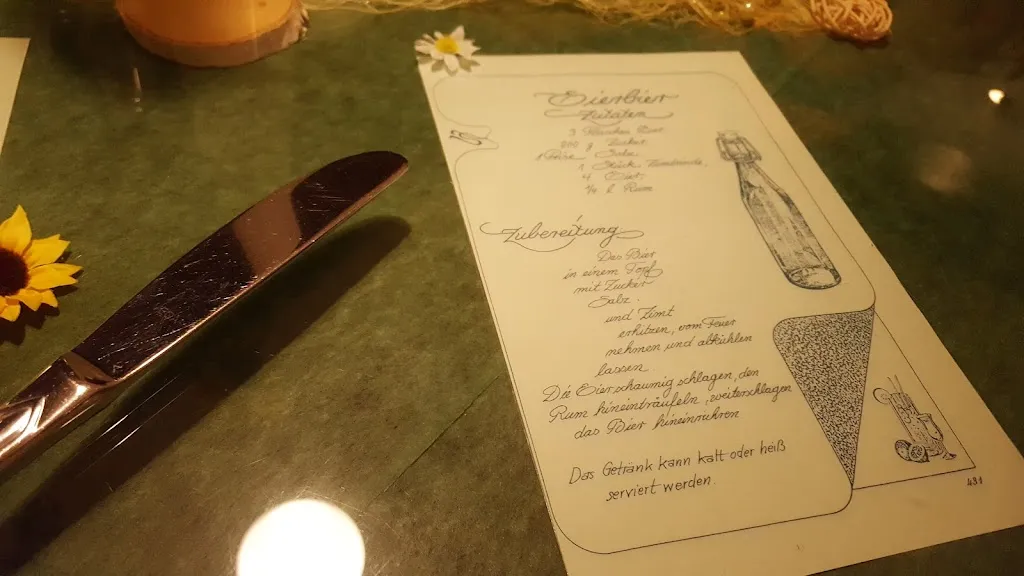 Eierbier
Zutaten
3 Flaschen Bier
200 g Zucker
1 Prise Salz
1 Stück Zimtrinde
4 Eier
l Rum
Zubereitung
Das Bier
in einem Topf
mit Zucker
Salz
und Zimt
erhitzen, vom Feuer
nehmen und abkühlen
lassen
Die Eier schaumig schlagen, den
Rum hineinträufeln, weiterschlagen
das Bier hineinrühren
Das Getränk kann kalt oder heiß
serviert werden.
431